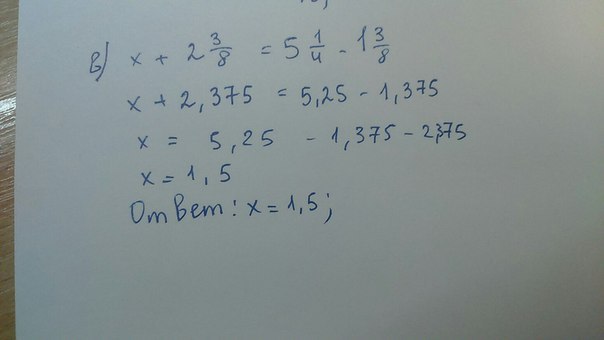 в) x + 2 3/8 = 5 1/4 - 1 3/8
x + 2,375 = 5,25 - 1,375
x = 5,25 - 1,375 - 2,375
x = 1,5
Ответ: x = 1,5;